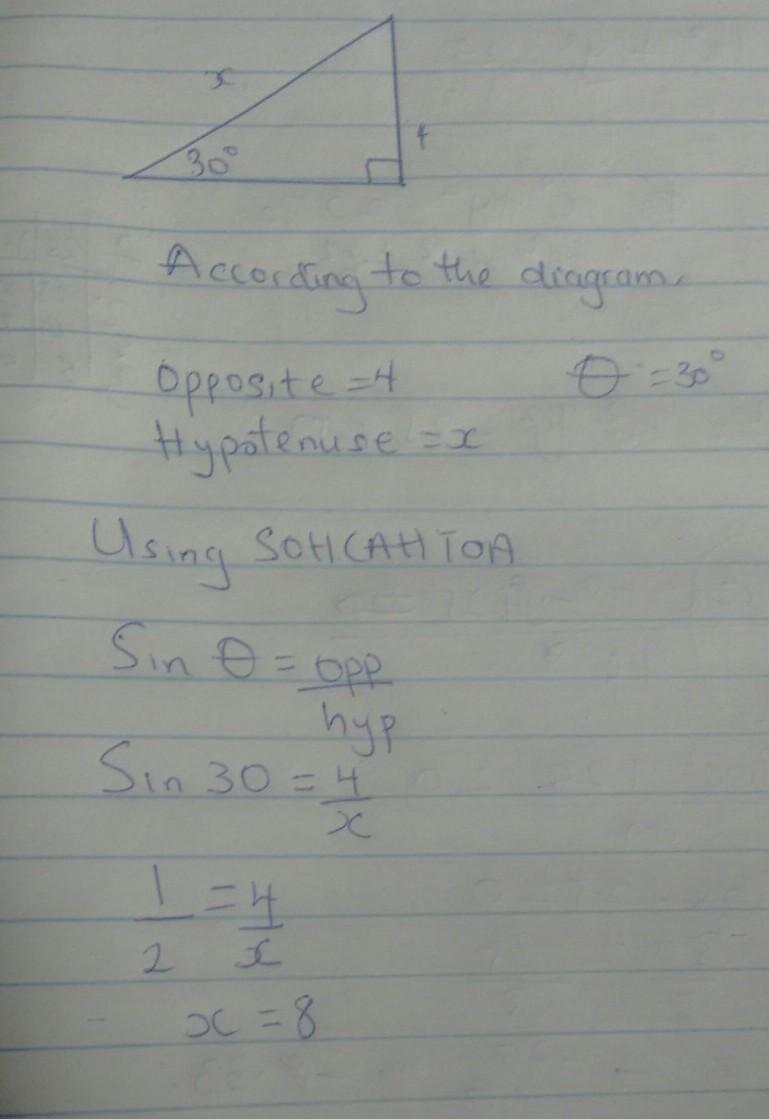 x
4
30°
According to the diagram.
Opposite = 4 θ = 30°
Hypotenuse = x
Using SOHCAHTOA
Sin θ = opp
hyp
Sin 30 = 4
x
1 = 4
2 x
x = 8